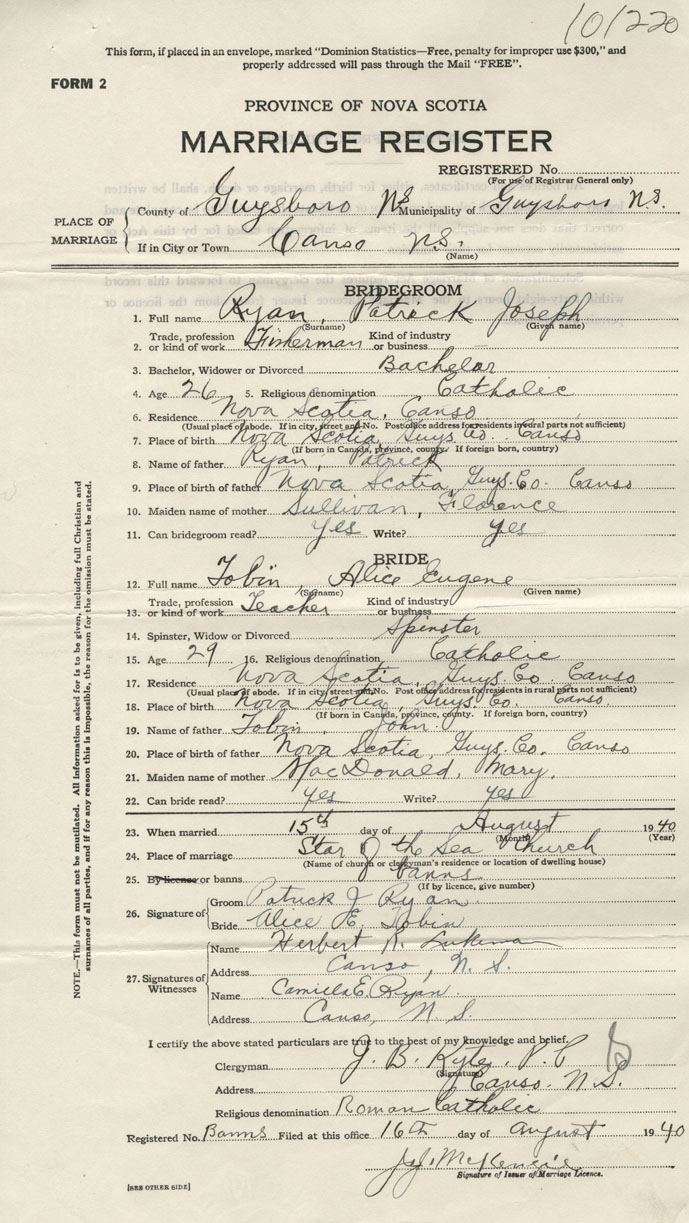 101220
This form, if placed in an envelope, marked "Dominion Statistics—Free, penalty for improper use $300," and
properly addressed will pass through the Mail "FREE".
FORM 2
PROVINCE OF NOVA SCOTIA
MARRIAGE REGISTER
REGISTERED No.
(For use of Registrar General only)
PLACE OF MARRIAGE
County of Guysboro NS Municipality of Guysboro N.S.
If in City or Town Canso N.S.
(Name)
BRIDEGROOM
1. Full name Ryan, Patrick Joseph
(Surname) (Given name)
2. Trade, profession or kind of work Fisherman Kind of industry or business
3. Bachelor, Widower or Divorced Bachelor
4. Age 26 5. Religious denomination Catholic
6. Residence Nova Scotia, Canso
(Usual place of abode. If in city, street and No. Post office address for residents in rural parts not sufficient)
7. Place of birth Nova Scotia Guys Co. Canso
(If born in Canada, province, county. If foreign born, country)
8. Name of father Ryan, Patrick
9. Place of birth of father Nova Scotia, Guys. Co. Canso
10. Maiden name of mother Sullivan, Florence
11. Can bridegroom read? yes Write? yes
BRIDE
12. Full name Tobin, Alice Eugene
(Surname) (Given name)
13. Trade, profession or kind of work Teacher Kind of industry or business
14. Spinster, Widow or Divorced Spinster
15. Age 29 16. Religious denomination Catholic
17. Residence Nova Scotia, Guys. Co. Canso
(Usual place of abode. If in city, street and No. Post office address for residents in rural parts not sufficient)
18. Place of birth Nova Scotia, Guys. Co. Canso.
(If born in Canada, province, county. If foreign born, country)
19. Name of father Tobin, John
20. Place of birth of father Nova Scotia, Guys. Co. Canso
21. Maiden name of mother MacDonald, Mary.
22. Can bride read? yes Write? yes
23. When married 15th day of August 1940
(Month) (Year)
24. Place of marriage Star of the Sea Church
(Name of church or clergyman's residence or location of dwelling house)
25. By licence or banns banns
(If by licence, give number)
26. Signature of
Groom Patrick J Ryan
Bride Alice E. Tobin
27. Signatures of Witnesses
Name Herbert R. Lukeman
Address Canso, N. S.
Name Camilla E. Ryan
Address Canso, N. S.
I certify the above stated particulars are true to the best of my knowledge and belief.
Clergyman J. B. Kyte, P. P
(Signature)
Address Canso. N.S.
Religious denomination Roman Catholic
Registered No. Banns Filed at this office 16th day of August 1940
J.J. McKenzie
Signature of Issuer of Marriage Licence.
[SEE OTHER SIDE]
NOTE.—This form must not be mutilated. All information asked for is to be given, including full Christian and
surnames of all parties, and if for any reason this is impossible, the reason for the omission must be stated.